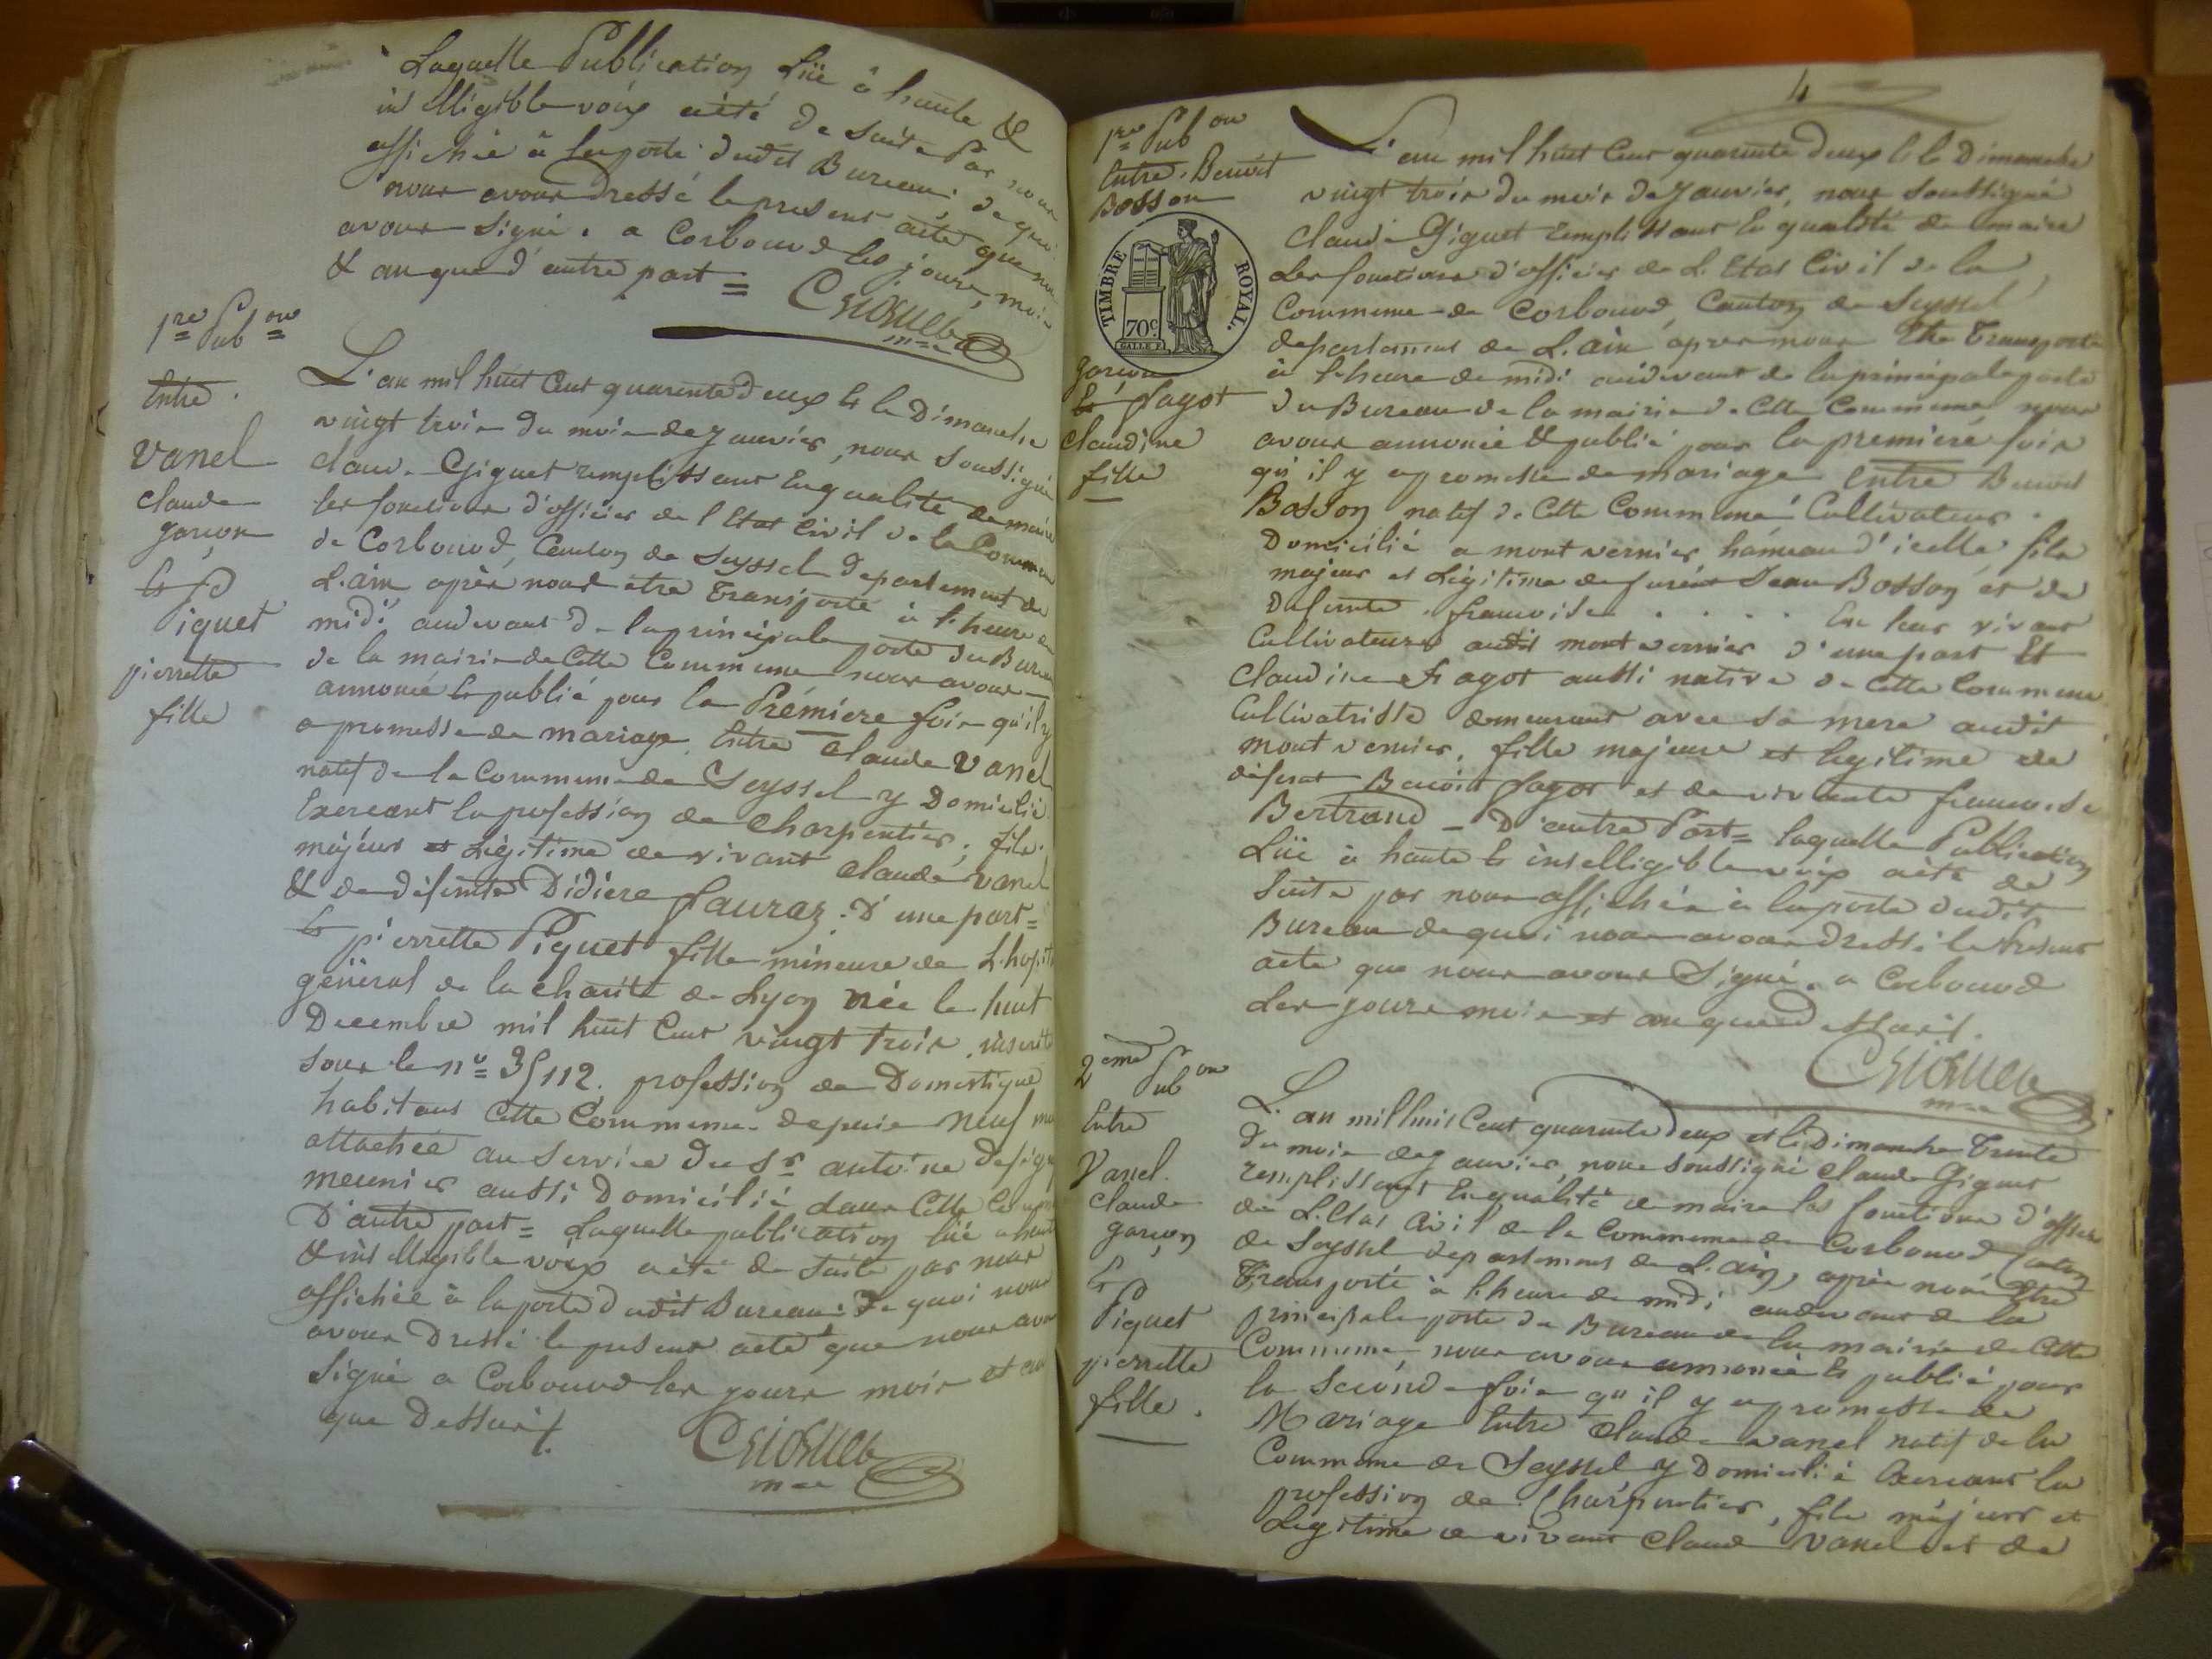 Laquelle Publication Lüe à haute &
intelligible voix a été de suite Par nous
affichée à la porte dudit Bureau; de quoi
nous avons dressé le present acte que nous
avons signé. a Corbonod les jours, mois
& an que d'autre part =
CGIGUET
mre
1re Pubon
Entre
Vanel
Claude
garçon
&
Piquet
pierrette
fille
L'an mil huit Cent quarante deux & le Dimanche
vingt trois du mois de Janvier, nous Soussigné
Claude Giguet remplissant En qualité de maire
les fonctions d'officier de l'Etat Civil de la Commune
de Corbonod, Canton de Seyssel departement de
L'ain après nous etre Transporté à l'heure de
midi audevant de la principale porte du Bureau
de la mairie de Cette Commune nous avons
annoncé & publié pour la Prémiere fois qu'il y
a promesse de mariage Entre Claude Vanel
natif de la Commune de Seyssel y Domicilié
Exercant la profession de Charpentier, fils
majeur et Légitime de vivant Claude Vanel
& de défunte Didiere Fauraz. D'une part =
& pierrette Piquet fille mineure de L'hopit
général de la charité de Lyon née le huit
Decembre mil huit Cent vingt trois, inscrite
sous le n° 35112. profession de Domestique
habitant Cette Commune depuis neuf mo
attachée au service du Sr antoine
meunier aussi Domicilié dans Cette Commune
D'autre part = Laquelle publication lüe a haute
& intelligible voix a été de suite par nous
affichée à la porte dudit Bureau; De quoi nous
avons Dressé le present acte que nous avons
Signé a Corbonod les jours mois et an
que Dessus.
CGIGUET
mre
4
1re Pubon
Entre Benoit
Bosson
TIMBRE ROYAL.
70c
GALLE F.
garçon
& Fagot
Claudine
fille
L'an mil huit Cent quarante deux & le Dimanche
vingt trois du mois de Janvier, nous soussigné
Claude Giguet remplissant En qualité de maire
Les fonctions d'officier de L'Etat Civil de la
Commune de Corbonod, Canton de Seyssel
departement de L'ain après nous Etre Transporté
à l'heure de midi audevant de la principale porte
du Bureau de la mairie de Cette Commune nous
avons annoncé & publié pour la premiere fois
qu'il y a promesse de mariage Entre Benoit
Bosson natif de Cette Commune Cultivateur
Domicilié a montvernier hameau d'icelle fils
majeur et Légitime de furent Jean Bosson et de
Defunte francoise . . . . En leur vivant
Cultivateurs audit montvernier d'une part Et
Claudine Fagot aussi native de Cette Commune
Cultivatrisse demeurant avec sa mere audit
montvernier, fille majeure et legitime de
défunt Benoit Fagot et de vivante francoise
Bertrand - D'autre Part = laquelle Publication
Lüe à haute & intelligible voix a été de
suite par nous affichée à la porte dudit
Bureau de quoi nous avons dressé le Present
acte que nous avons Signé. a Corbonod
Les jours mois et an que dessus.
CGIGUET
mre
2eme Pubon
Entre
Vanel
Claude
garçon
&
Piquet
pierrette
fille.
L'an mil huit Cent quarante deux et le Dimanche Trente
du mois de janvier, nous soussigné Claude Giguet
remplissant En qualité de maire les fonctions d'officier
de L'Etat Civil de la Commune de Corbonod Canton
de Seyssel departement de L'ain, après nous Etre
Transporté à l'heure de midi audevant de la
principale porte du Bureau de la mairie de Cette
Commune, nous avons annoncé & publié pour
la seconde fois qu'il y a promesse de
Mariage Entre Claude Vanel natif de la
Commune de Seyssel y Domicilié Exercant la
profession de Charpentier, fils majeur et
Légitime de vivant Claude Vanel et de